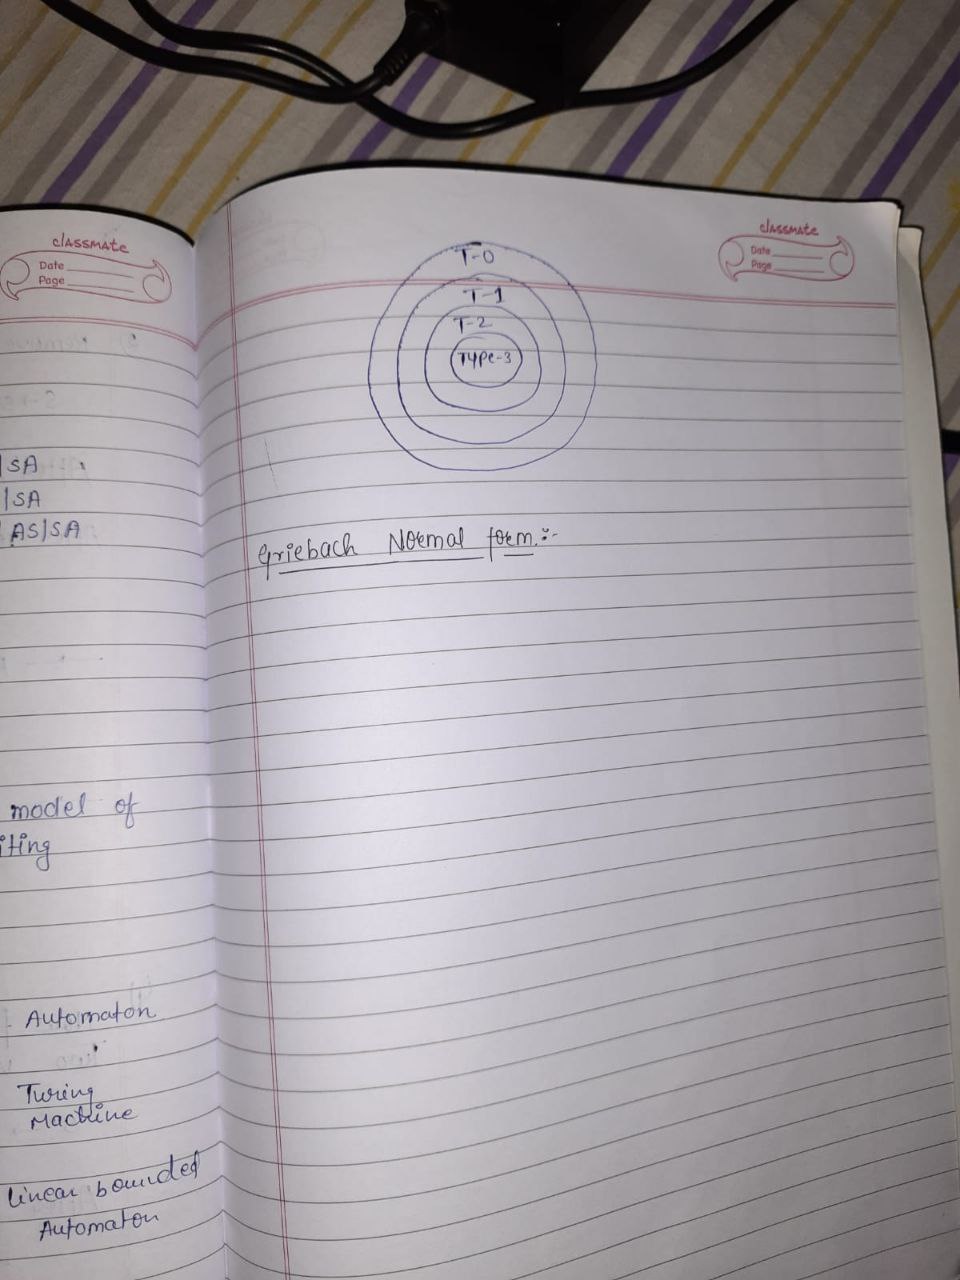 classmate
Date
Page
|SA
|SA
AS|SA
model of
iting
Automaton
Turing
Machine
Linear bounded
Automaton
classmate
Date
Page
T-0
T-1
T-2
TYPe-3
Griebach Normal form:-